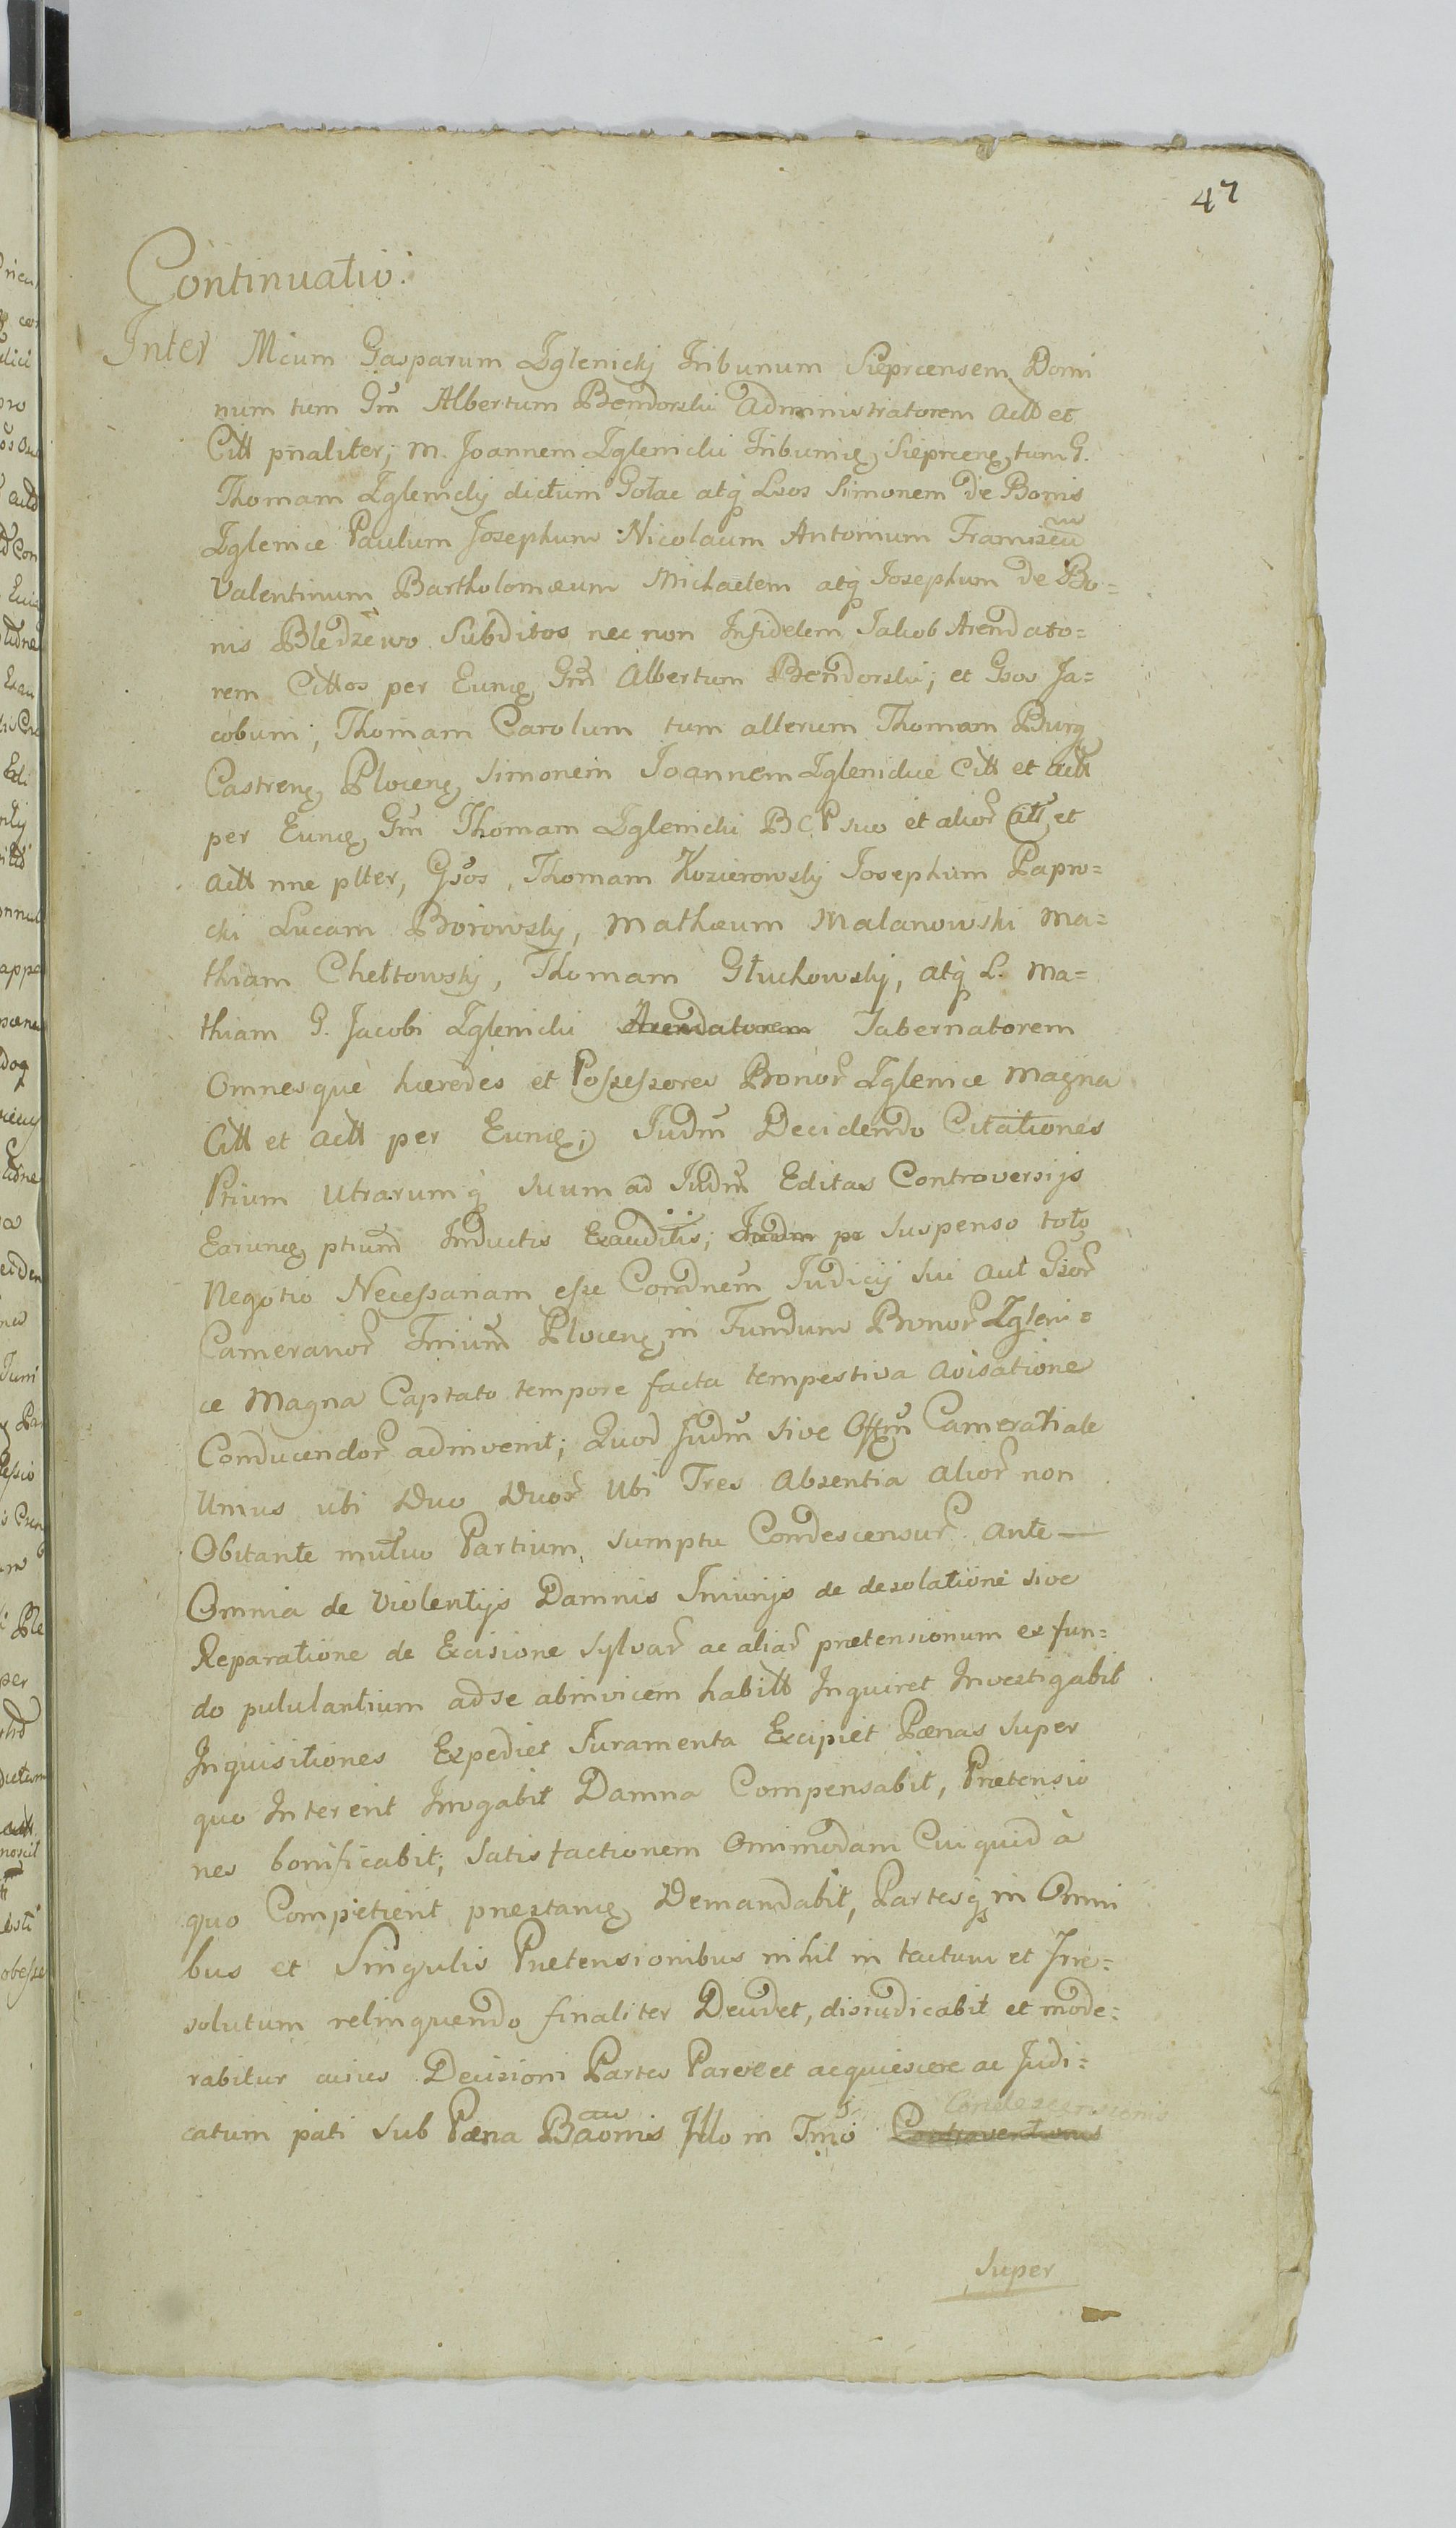 47
Continuatio.
Inter Mcum Gasparum Iglenicky Tribunum Sieprcensem Domi
num tum Gm Albertum Bendorski Administratorem actt et
Citt pnaliter; M. Joannem Iglenicki Tribunię Sieprcenę, tum G.
Thomam Iglenicky dictum Gołac atq Lsos Simonem de Bonis
Iglenice Paulum Josephum Nicolaum Antonium Franciscu
Valentinum Bartholomæum Michaelem atq Josephum de Bo=
nis Bledzewo Subditos nec non Infidelem Jakob Arendato=
rem Cittos per Eunę Gm Albertum Bendorski; et Gsos Ja=
cobum; Thomam Carolum tum alterum Thomam Burg
Castrenę Plocenę Simonem Joannem Iglenickie Citt et actt
per Eunę Gm Thomam Iglenicki BCP suo et alior Citt et
actt nne plter, Gsos, Thomam Kozierowsky Josephum Papro=
cki Lucam Borowsky, Mathæum Malanowski Ma=
thiam Chełtowsky, Thomam Głuchowsky, atq L. Ma=
thiam G. Jacobi Iglenicki Arendatorem Tabernatorem
Omnesque hæredes et Possessores Bonor Iglenice Magna
Citt et actt per Eunę; Judm Decidendo Citationes
Ptium Utrarumq suum ad Judm Editas Controversijs
Earunę ptium Inductis Exauditis; Judm pr Suspenso toto
Negotio Necessariam esse Condnem Judicij sui aut Gsor
Cameranor Trium Plocenę in Fundum Bonor Igleni=
ce Magna Captato tempore facta tempestiva avisatione
Conducendor adinvenit; Quod Judm sive Offm Cameratiale
Unius ubi Duo Duor Ubi Tres Absentia alior non
Obstante mutuo Partium sumptu Condescensur ante
Omnia de Violentijs Damnis Iniurijs de desolatione sive
Reparatione de Excisione Sylvar ac aliar prætensionum ex fun=
do pululantium ad se abinvicem habitt Inquiret Investigabit
Inquisitiones Expediet Juramenta Excipiet Pœnas super
quo Intererit Irrogabit Damna Compensabit, Prætensio
nes bonificabit; satisfactionem Omnimodam Cui quid à
quo Competierit præstanę Demandabit, Partesq in Omni
bus et Singulis Prætensionibus nihil in tactum et Irre=
solutum relinquendo finaliter Decidet, disiudicabit et mode=
rabitur cuius Decisioni Partes Parere et acquiescere ac Judi=
Condescensionis
catum pati sub Pæna Baonis Illo in Tmo Contraventionis
Super